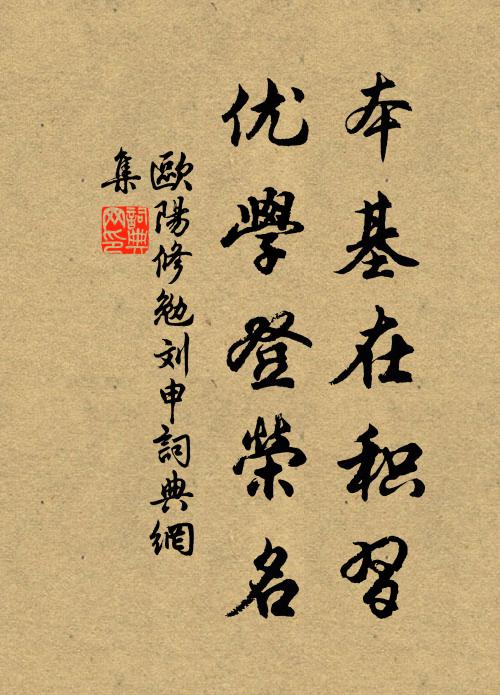 夲基在积習
优學登荣名
歐陽修勉刘申詞典網
集
詞典
网印